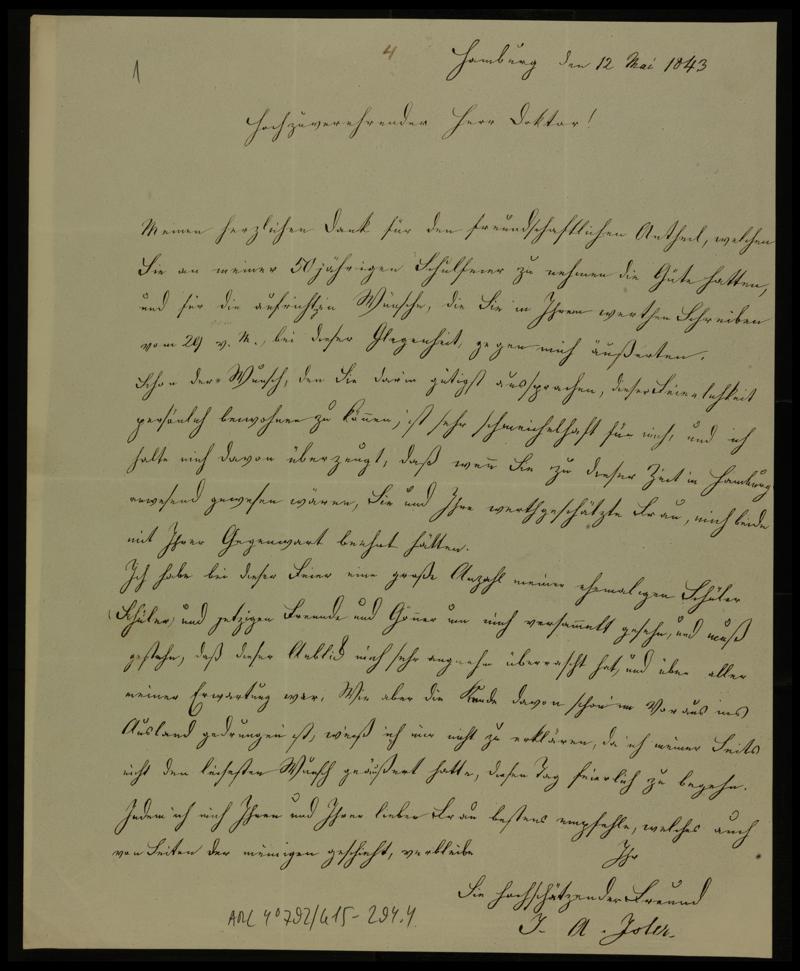 4
Hamburg den 12 Mai 1843
1
Hochzuverehrender Herr Doktor!
Meinen herzlichen Dank für den freundschaftlichen Antheil, welchen
Sie an meiner 50jährigen Schulfeier zu nehmen die Güte hatten,
und für die aufrichtgen Wünsche, die Sie in Ihrem werthen Schreiben
vom 29 v. M., bei dieser Glegenheit, gegen mich äußerten.
Schon der Wunsch, den Sie darin gütigst aussprachen, dieser Feierlichkeit
persönlich beiwohnen zu können, ist sehr schmeichelhaft für mich, und ich
halte mich davon überzeugt, daß wenn Sie zu dieser Zeit in Hamburg
anwesend gewesen wären, Sie und Ihre werthgeschätzte Frau, mich beide
mit Ihrer Gegenwart beehrt hätten.
Ich habe bei dieser Feier eine große Anzahl meiner ehemaligen Schüler
(Schüler) und jetzigen Freunde und Gönner um mich versammelt gesehn, und muß
gestehn, daß dieser Anblick mich sehr angenehm überrascht hat, und über aller
meiner Erwartung war. Wie aber die Kunde davon schon im Voraus ins
Ausland gedrungen ist, weiß ich mir nicht zu erklären, da ich meiner Seits
nicht den leisesten Wunsch geäußert hatte, diesen Tag feierlich zu begehn.
Indem ich mich Ihnen und Ihrer lieben Frau bestens empfehle, welches auch
von Seiten der meinigen geschieht, verbleibe
Ihr
Sie hochschätzender Freund
J. A.
ARC 4° 792/G15-294.4